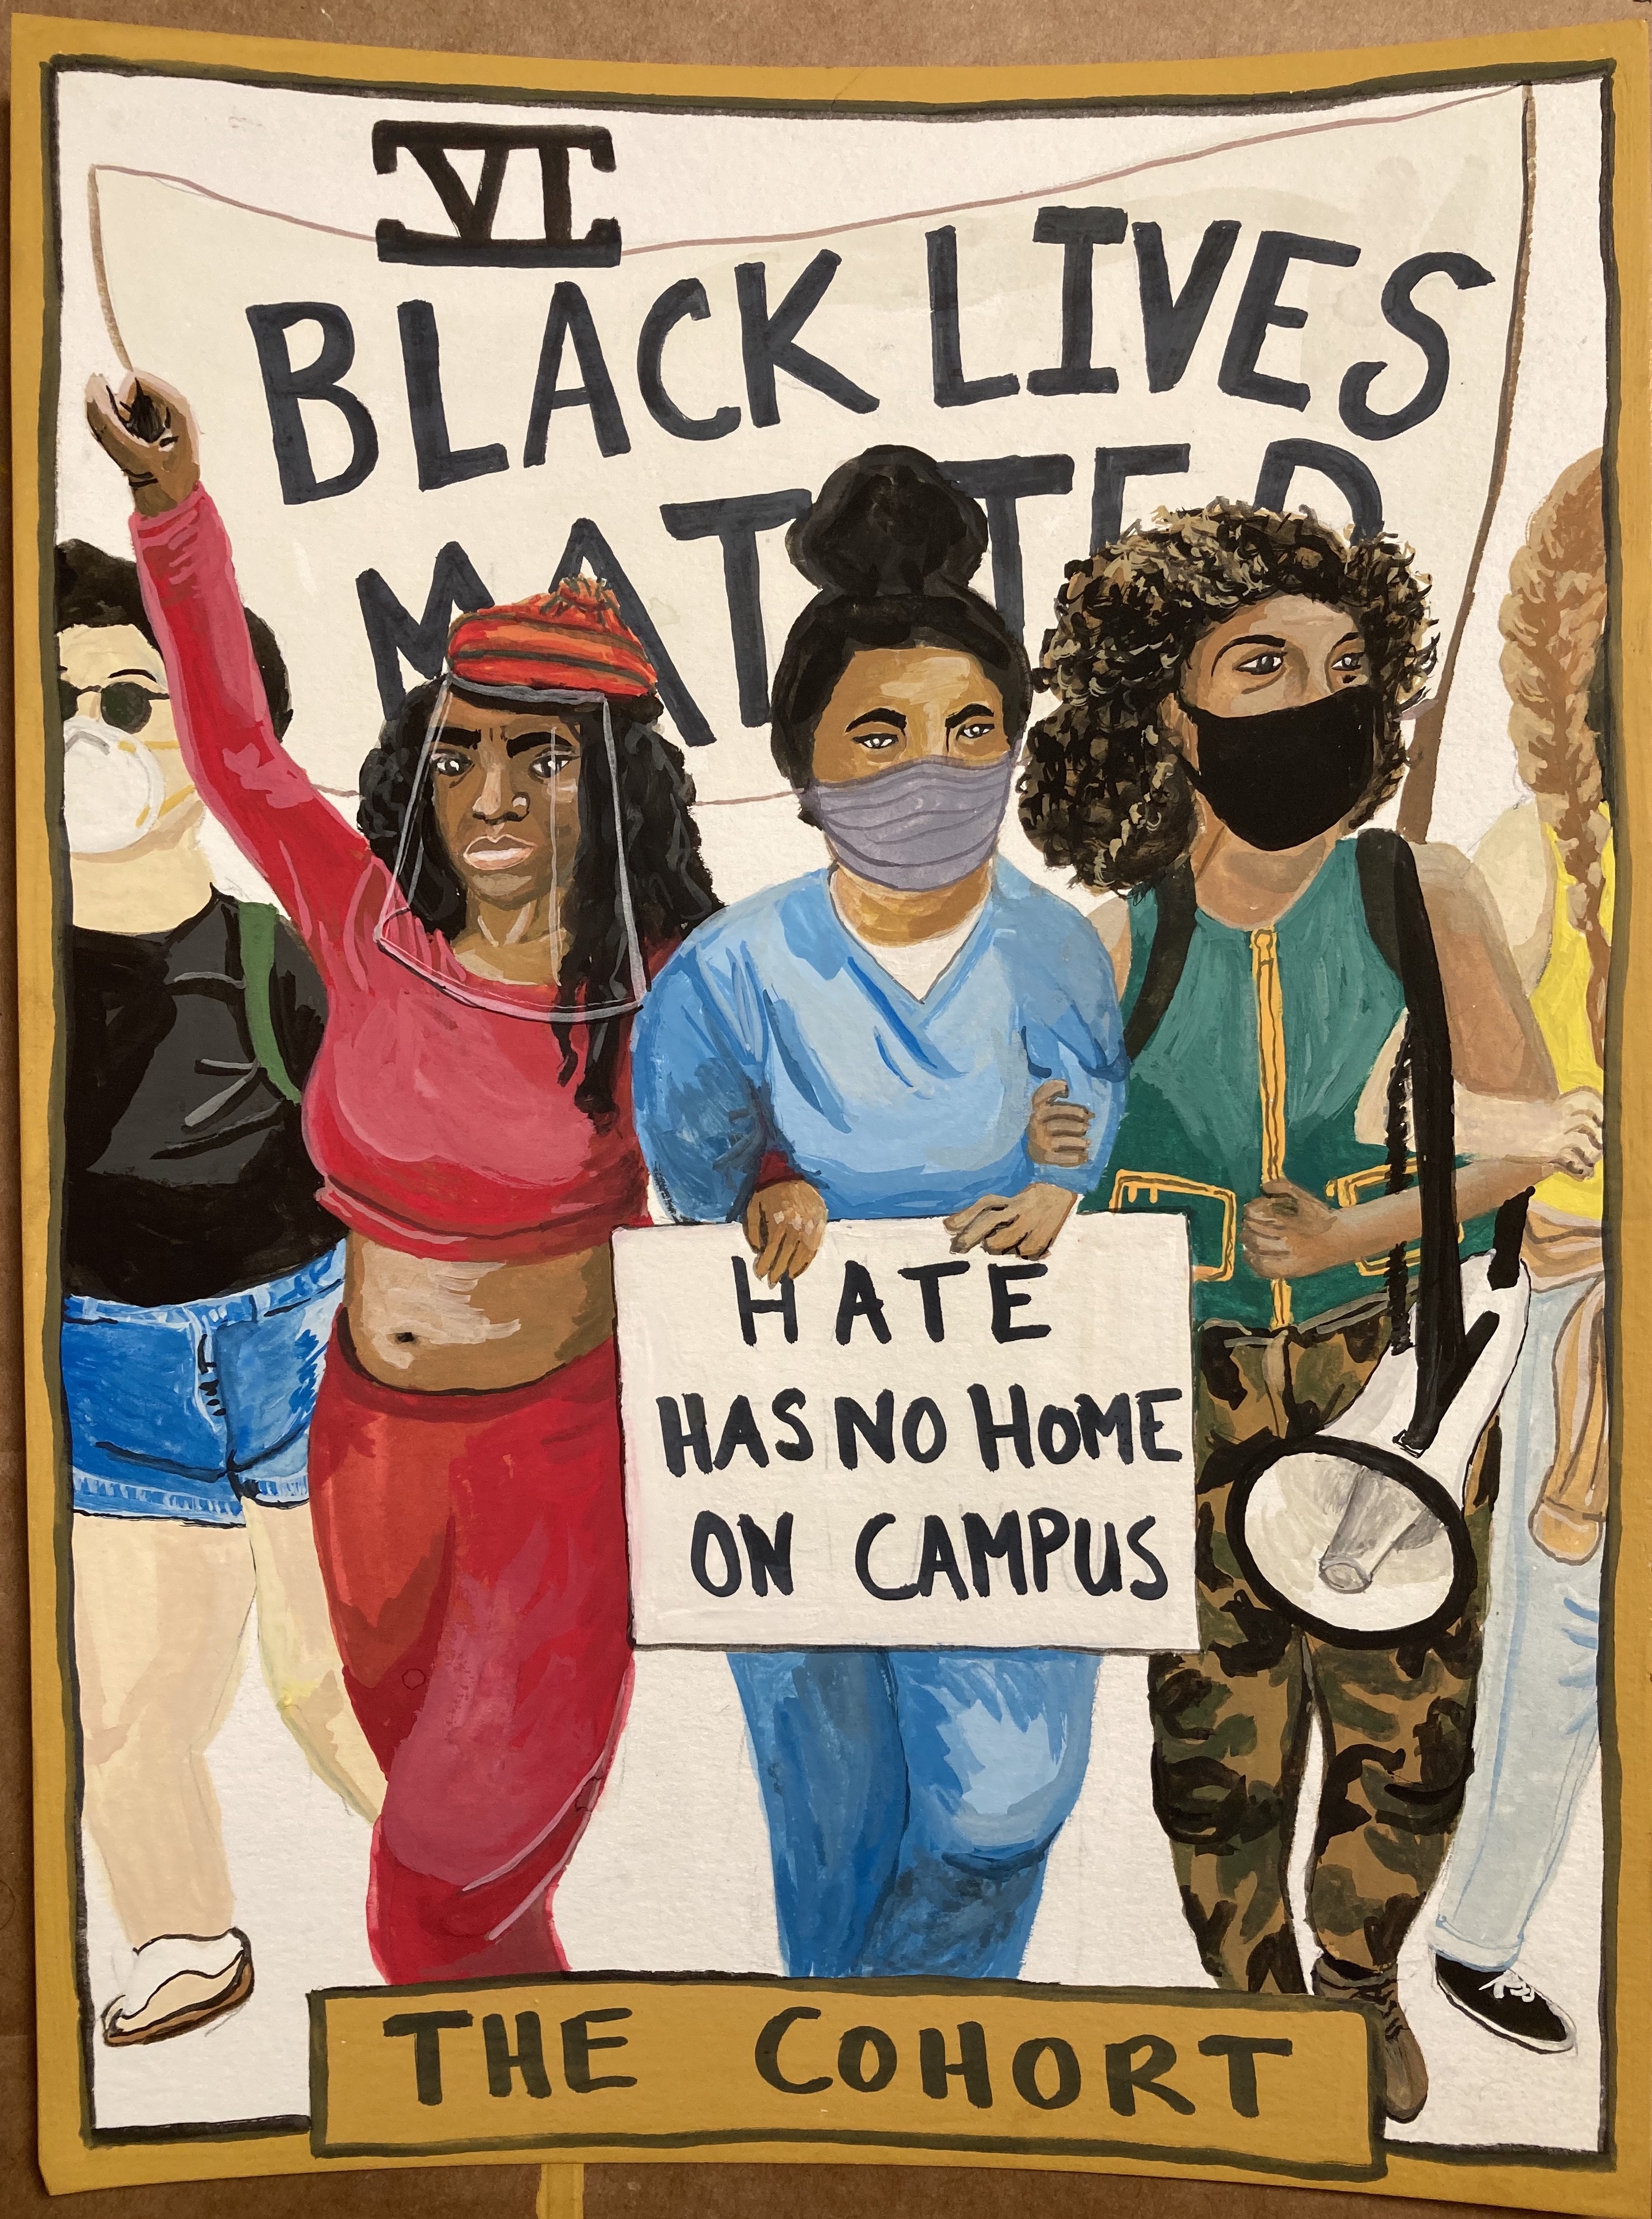 VI
BLACK LIVES
MATTER
HATE
HAS NO HOME
ON CAMPUS
THE COHORT